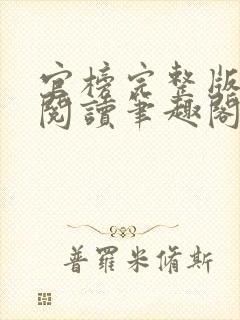 官榜完整版
閱讀筆趣閣
普羅米脩斯